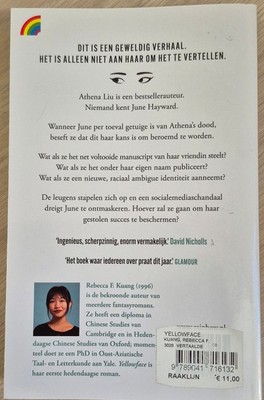 DIT IS EEN GEWELDIG VERHAAL.
HET IS ALLEEN NIET AAN HAAR OM HET TE VERTELLEN.
Athena Liu is een bestsellerauteur.
Niemand kent June Hayward.
Wanneer June per toeval getuige is van Athena's dood,
beseft ze dat dit haar kans is om beroemd te worden.
Wat als ze het net voltooide manuscript van haar vriendin steelt?
Wat als ze het onder haar eigen naam publiceert?
Wat als ze een nieuwe, raciaal ambigue identiteit aanneemt?
De leugens stapelen zich op en een socialemediaschandaal
dreigt June te ontmaskeren. Hoever zal ze gaan om haar
gestolen succes te beschermen?
'Ingenieus, scherpzinnig, enorm vermakelijk.' David Nicholls
'Het boek waar iedereen over praat dit jaar.' GLAMOUR
Rebecca F. Kuang (1996)
is de bekroonde auteur van
meerdere fantasyromans.
Ze heeft een diploma in
Chinese Studies van
Cambridge en in Heden-
daagse Chinese Studies van Oxford; momen-
teel doet ze een PhD in Oost-Aziatische
Taal- en Letterkunde aan Yale. Yellowface is
haar eerste hedendaagse roman.
YELLOWFACE
KUANG, REBECCA F.
VERTAALDE
9789041716132
RAAKLIJN
€ 11,00